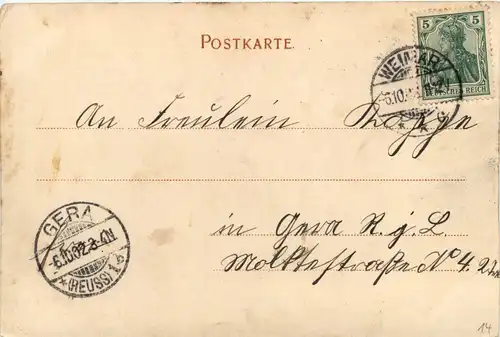 POSTKARTE.
5 5
DEUTSCHES REICH
WEIMAR
6.10.
An Fräulein
GERA
6.10.02.3-4N
*(REUSS) 1b
in Gera R. j. L.
Moltkestraße No 4.
14